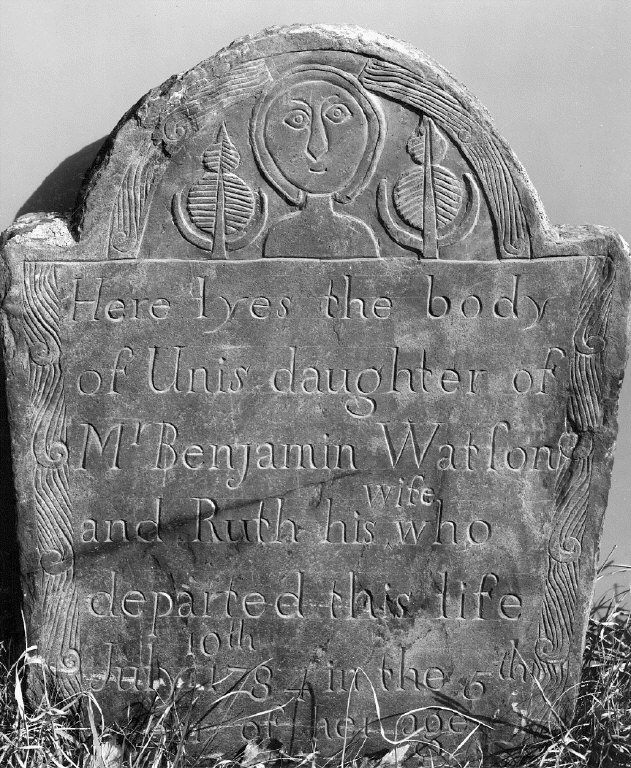 Here lyes the body
of Unis daughter of
Mr Benjamin Watſon
wife
and Ruth his who
departed this life
10th
July 1784 in the 5th
of her age